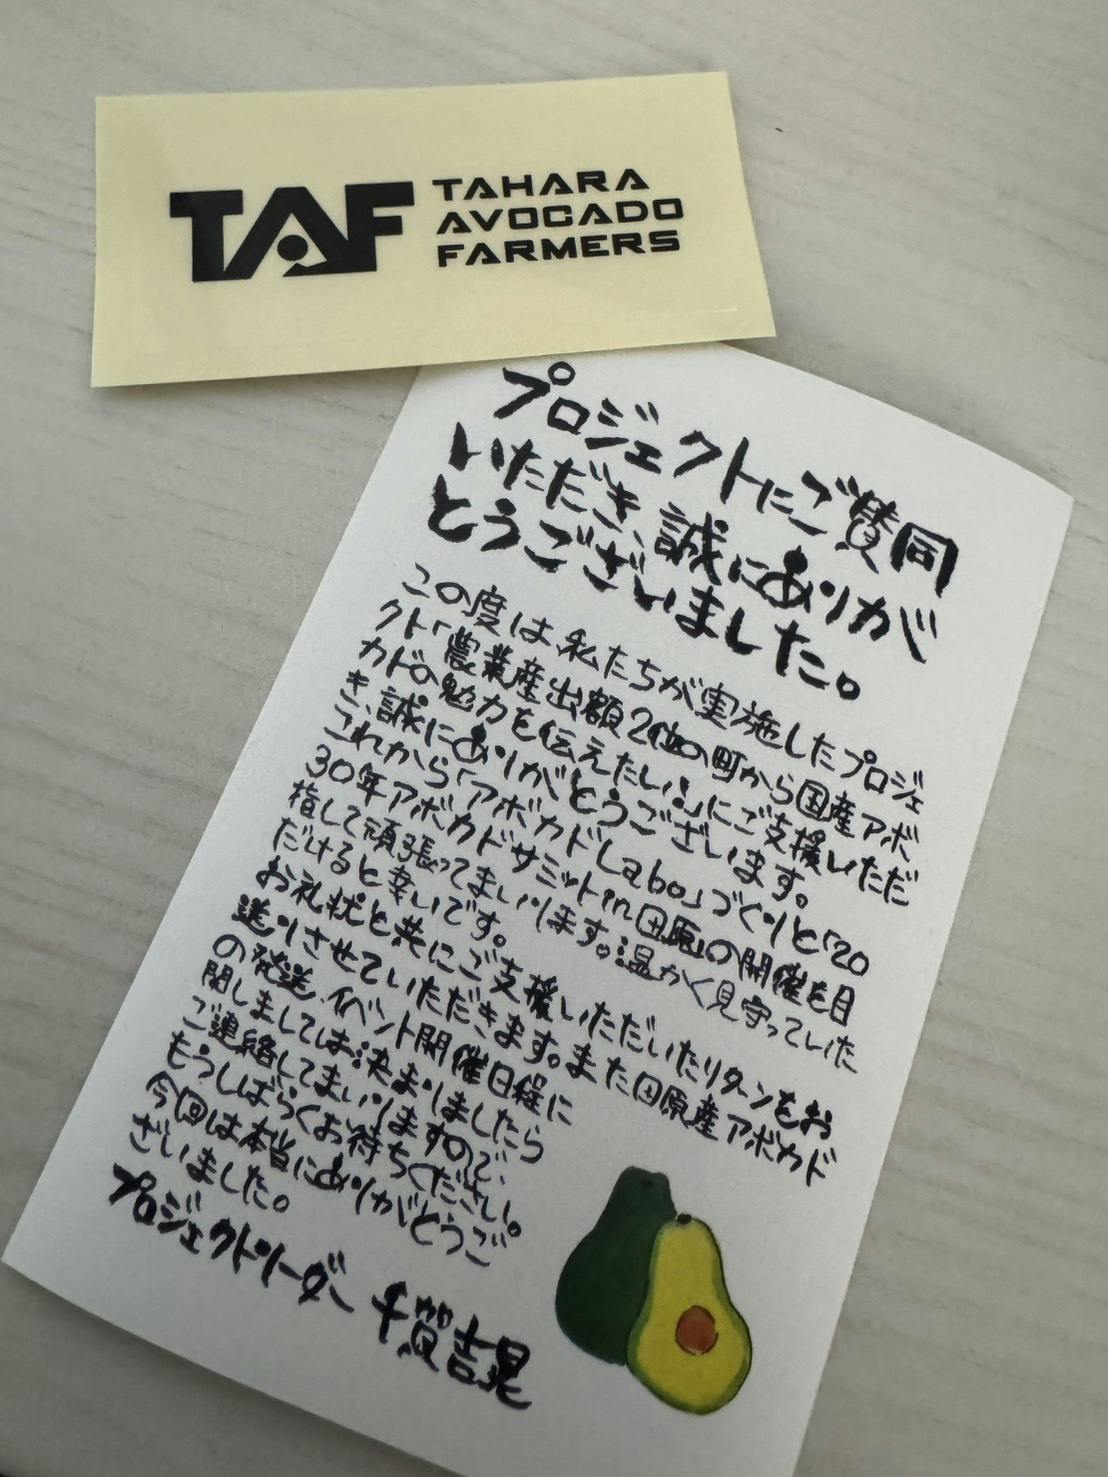 TAF
TAHARA
AVOCADO
FARMERS
プロジェクトにご賛同
いただき、誠にありが
とうございました。
この度は、私たちが実施したプロジェ
クト「農業産出額2位の町から国産アボ
カドの魅力を伝えたい!」にご支援いただ
き、誠にありがとうございます。
これから「アボカドLabo」づくりと「20
30年アボカドサミットin田原」の開催を目
指して頑張ってまいります。温かく見守っていた
だけると幸いです。
お礼状と共にご支援いただいたリターンをお
送りさせていただきます。また田原産アボカド
の発送、イベント開催日程に
関しましては、決まりましたら
ご連絡してまいりますので、
もうしばらくお待ちください。
今回は本当にありがとうご
ざいました。
プロジェクトリーダー 千賀吉晃